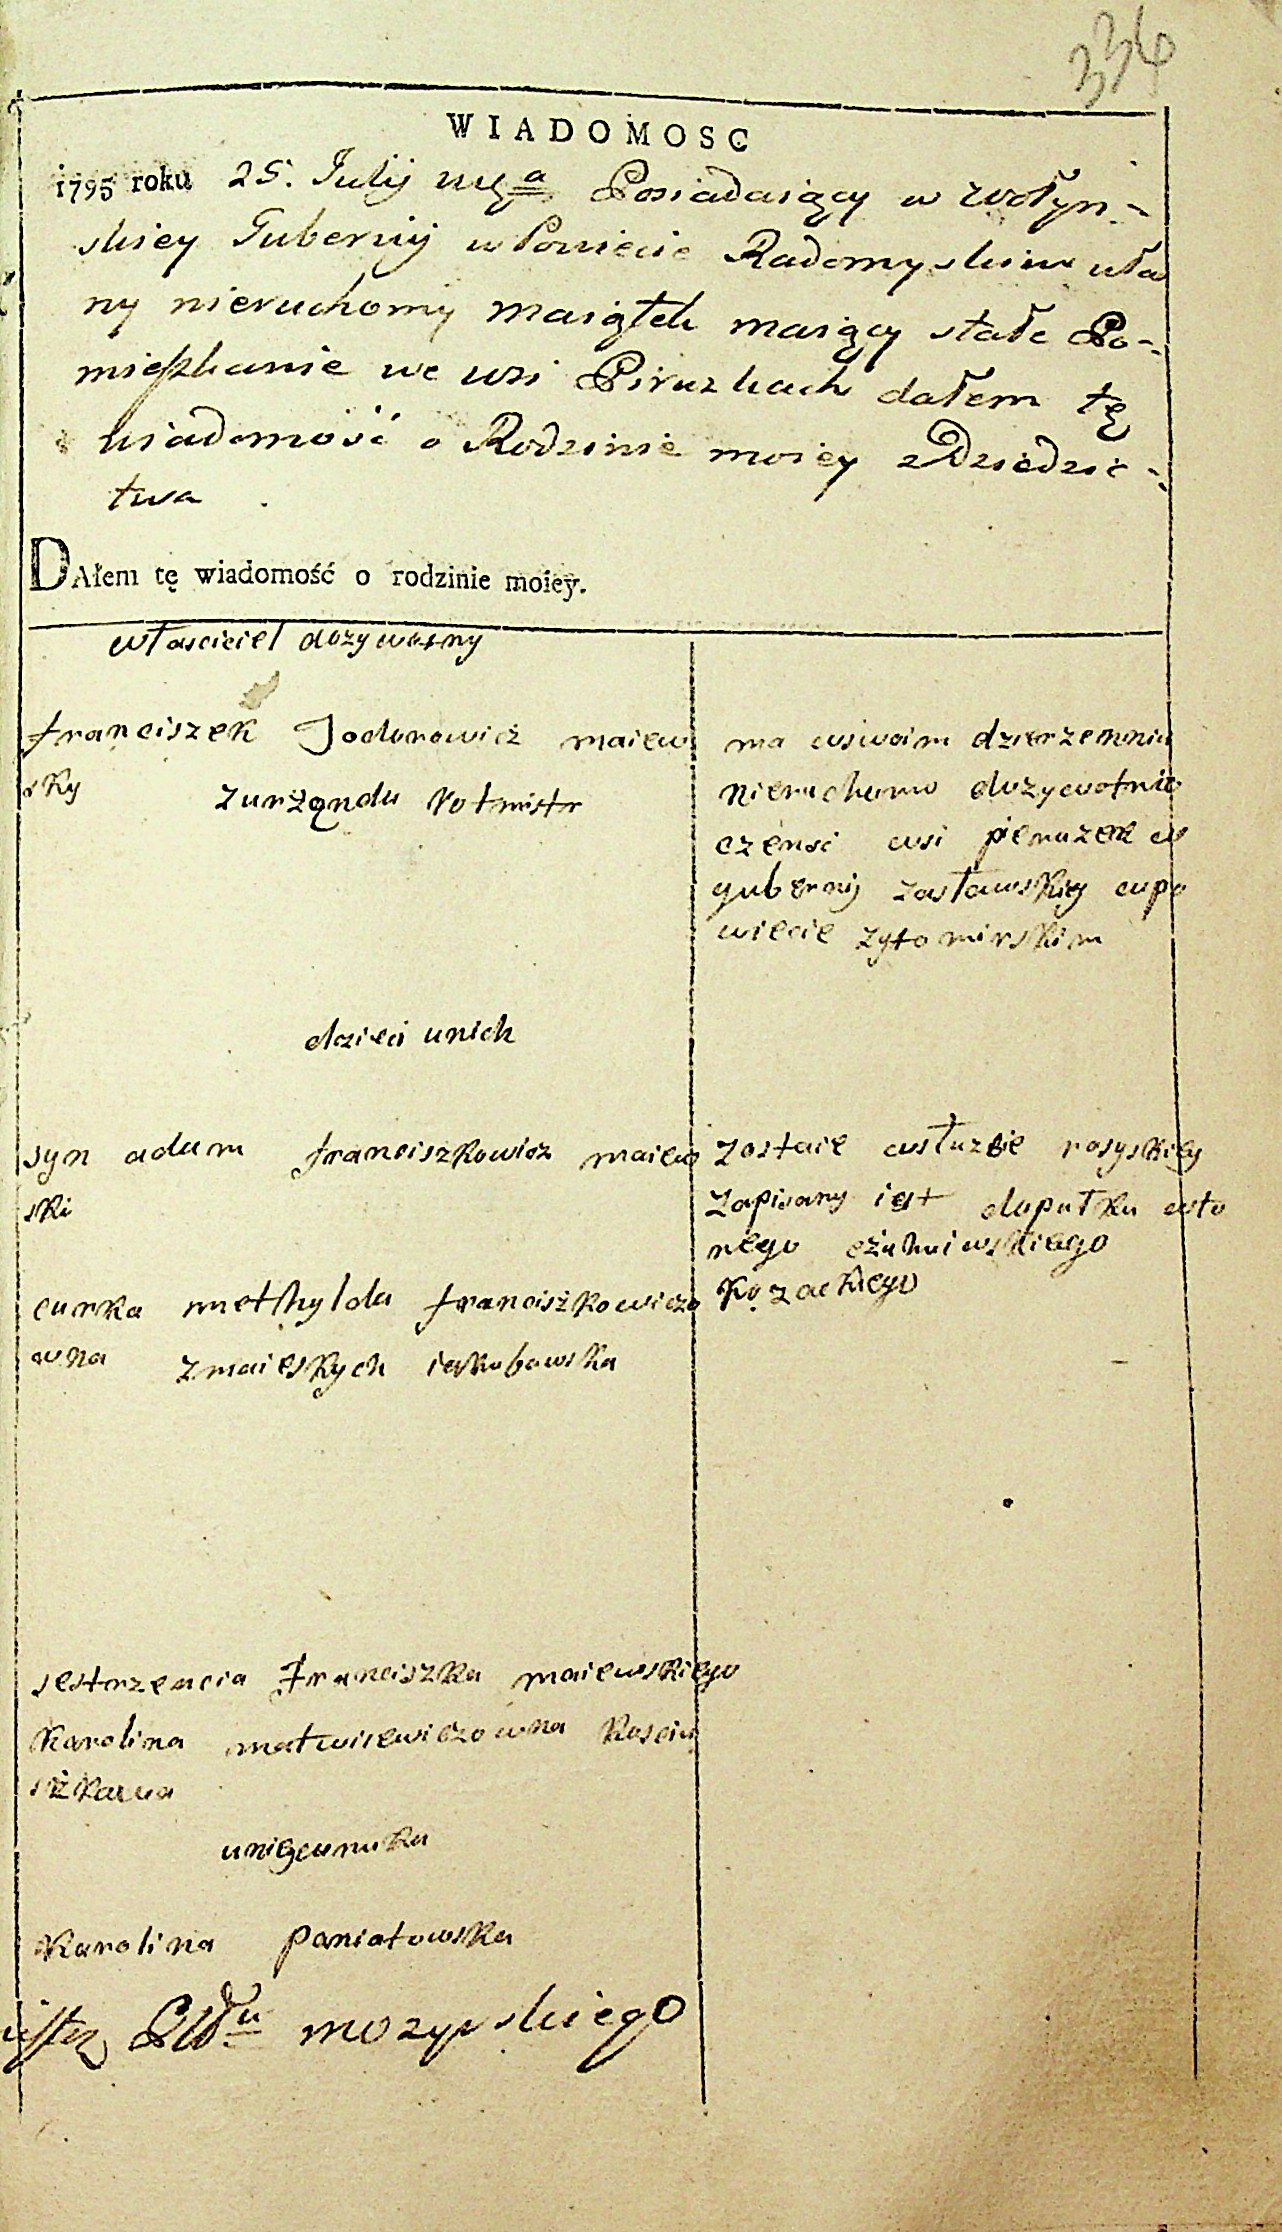 336
WIADOMOSC
1795 roku 25. Julij Posiadaiący w Wołyn-
skiey Gubernij w Powiecie Radomyskim wła
ny nieruchomy maiątek maiący stałe Po-
mieszkanie we wsi Piruzkach dałem tę
wiadomość o Rodzinie moiey z Dziedzic-
twa
DAłem tę wiadomość o rodzinie moiey.
własciciel dozywotny
franciszek Jodorowicz maiew
sky zurzędu Rotmistr
ma wswoim dzierzenniu
nieruchomo dozywotnio
czensć wsi pieruzek w
gubernij zasławskiey wpo
wiecie zytomirskim
dzieci unich
syn adam franciszkowicz maiew
ski
zostaie wsłuzbie rosyskiey
zapisany iest dopułku
nego
kozackiego
curka methylda franciszkowiczo
wna zmaieskych iakubowska
sestrzencia franciszka maiewskiego
Karolina matwiewiczowna kosciu
szkowa
unieywnuka
Karolina paniatowska
mozyrskiego